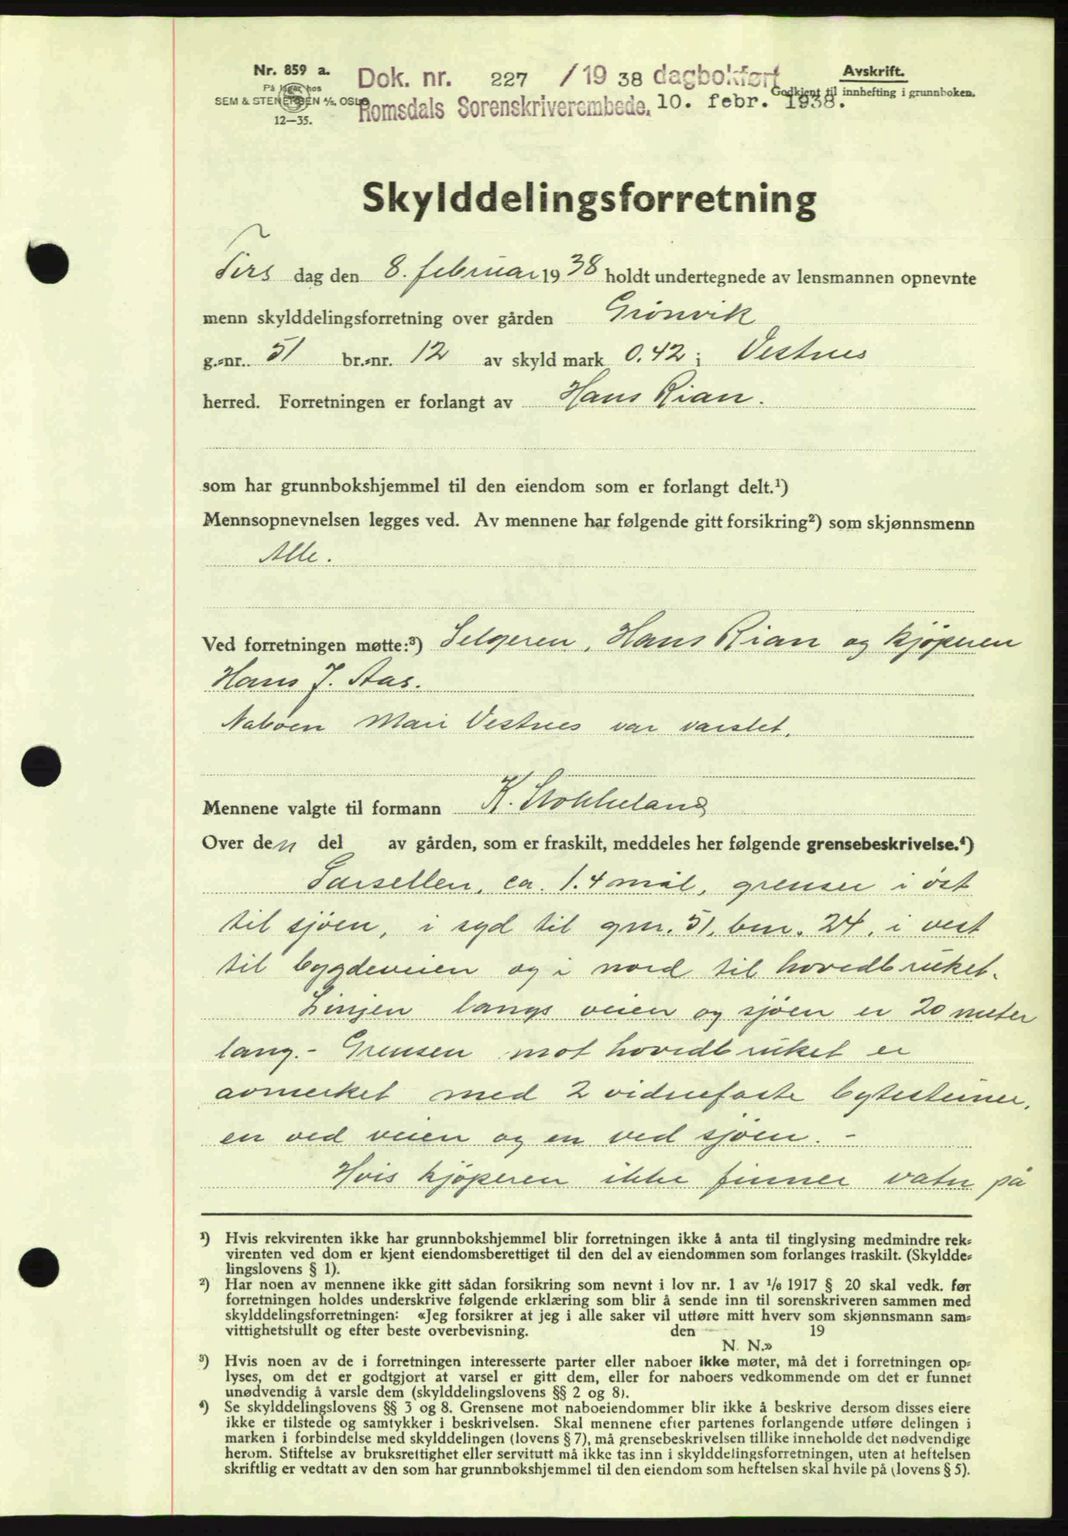 Nr. 859 a.
På lager hos
SEM & STENERSEN A/S, OSLO
12—35.
Dok. nr. 227 /1938 dagbokført
Romsdals Sorenskriverembede, 10. febr. 1938.
Avskrift.
Godkjent til innhefting i grunnboken.
Skylddelingsforretning
Tirs dag den 8. februar 1938 holdt undertegnede av lensmannen opnevnte
menn skylddelingsforretning over gården Grönvik
g.-nr. 51 br.-nr. 12 av skyld mark 0.42 i Vestnes
herred. Forretningen er forlangt av Hans Rian.
som har grunnbokshjemmel til den eiendom som er forlangt delt.¹)
Mennsopnevnelsen legges ved. Av mennene har følgende gitt forsikring²) som skjønnsmenn
Alle.
Ved forretningen møtte:³) Selgeren, Hans Rian og kjöperen
Hans J. Aas.
Naboen Mari Vestnes var varslet.
Mennene valgte til formann K. Stokkeland
Over den del av gården, som er fraskilt, meddeles her følgende grensebeskrivelse.⁴)
Parsellen, ca. 1.4 mål, grenser i öst
til sjöen, i syd til gnr. 51, bnr. 24, i vest
til bygdeveien og i nord til hovedbruket.
Linjen langs veien og sjöen er 20 meter
lang. - Grensen mot hovedbruket er
avmerket med 2 vidnefaste bytesteiner,
en ved veien og en ved sjöen. -
Hvis kjöperen ikke finner vatn på
¹) Hvis rekvirenten ikke har grunnbokshjemmel blir forretningen ikke å anta til tinglysing medmindre rek-
virenten ved dom er kjent eiendomsberettiget til den del av eiendommen som forlanges fraskilt. (Skyldde-
lingslovens § 1).
²) Har noen av mennene ikke gitt sådan forsikring som nevnt i lov nr. 1 av ¹/₆ 1917 § 20 skal vedk. før
forretningen holdes underskrive følgende erklæring som blir å sende inn til sorenskriveren sammen med
skylddelingsforretningen: «Jeg forsikrer at jeg i alle saker vil utføre mitt hverv som skjønnsmann sam-
vittighetsfullt og efter beste overbevisning. den 19
N. N.»
³) Hvis noen av de i forretningen interesserte parter eller naboer ikke møter, må det i forretningen op-
lyses, om det er godtgjort at varsel er gitt dem, eller for naboers vedkommende om det er funnet
unødvendig å varsle dem (skylddelingslovens §§ 2 og 8).
⁴) Se skylddelingslovens §§ 3 og 8. Grensene mot naboeiendommer blir ikke å beskrive dersom disses eiere
ikke er tilstede og samtykker i beskrivelsen. Skal mennene efter partenes forlangende utføre delingen i
marken i forbindelse med skylddelingen (lovens § 7), må grensebeskrivelsen tillike inneholde det nødvendige
herom. Stiftelse av bruksrettighet eller servitutt må ikke tas inn i skylddelingsforretningen, uten at heftelsen
skriftlig er vedtatt av den som har grunnbokshjemmel til den eiendom som heftelsen skal hvile på (lovens § 5).